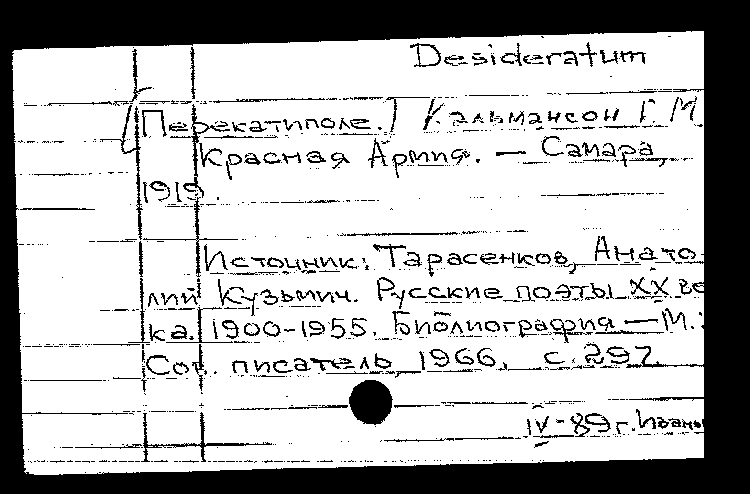 Desideratum
[Перекатиполе.] Кальмансон Г. М.
Красная Армия. — Самара,
1919.
Источник: Тарасенков, Анато-
лий Кузьмич. Русские поэты XX ве
ка. 1900-1955. Библиография — М.:
Сов. писатель, 1966. с. 297
IV-89г. Иванн